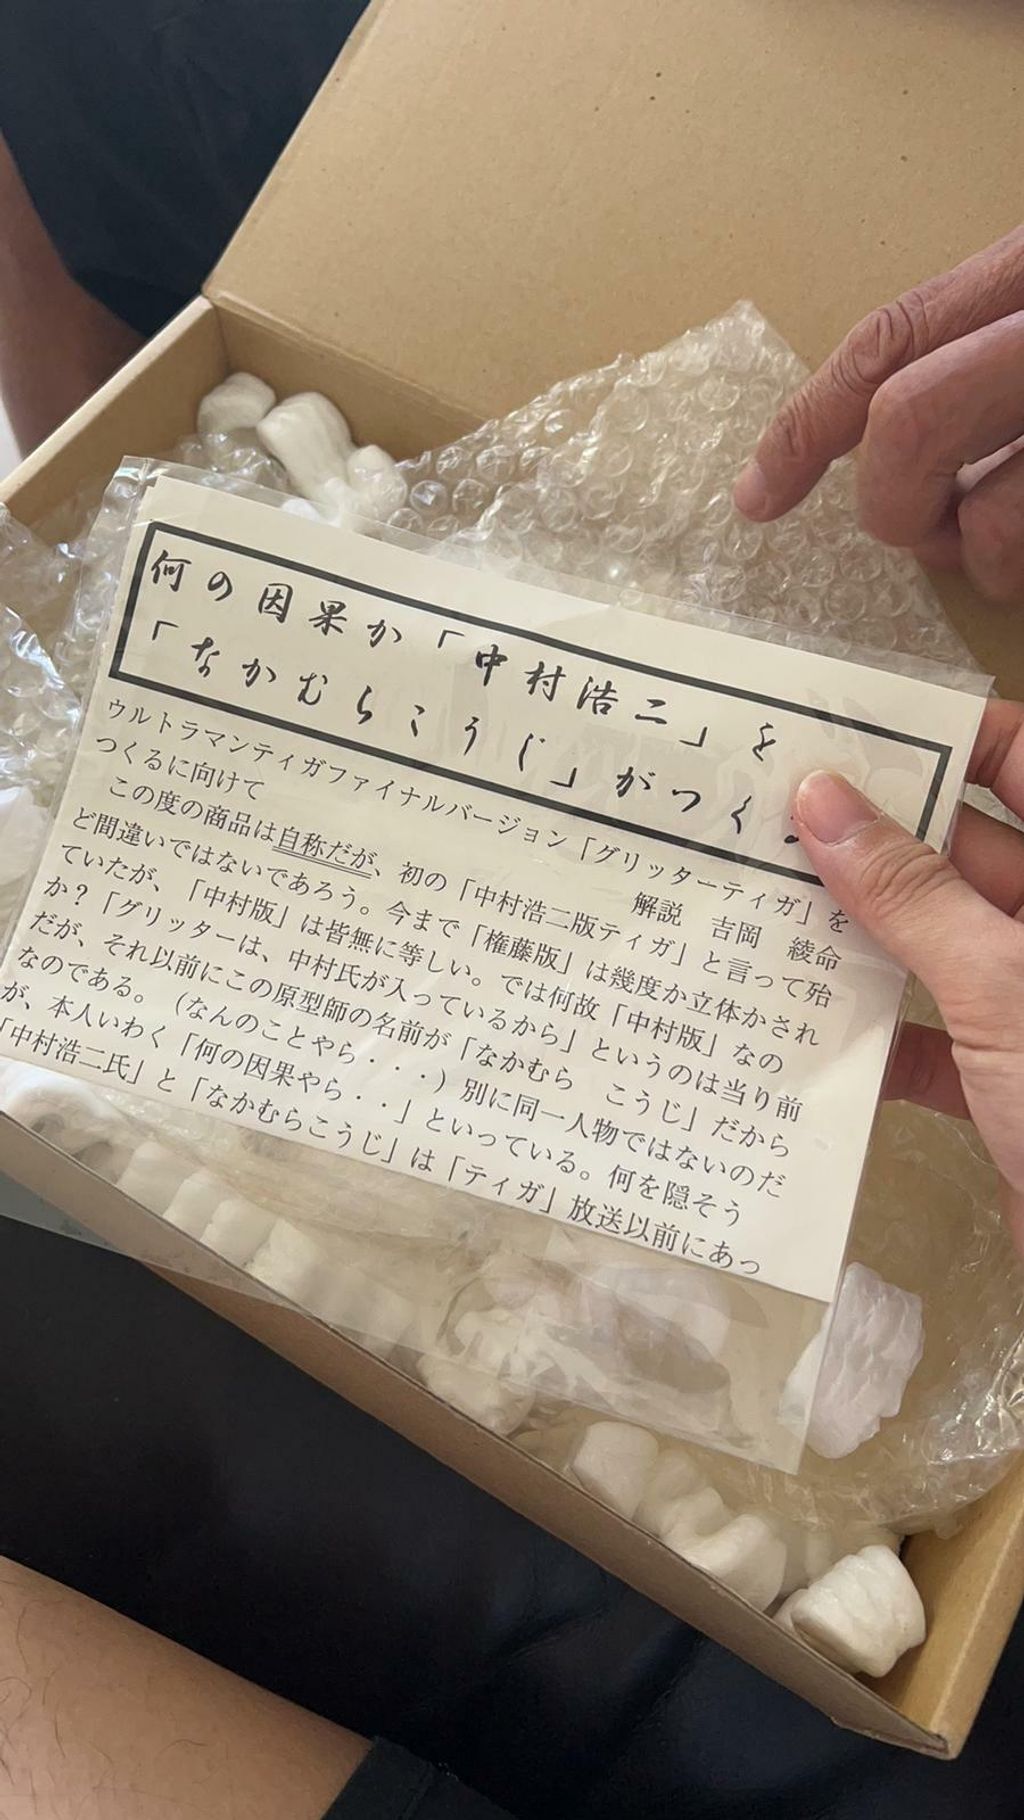 何の因果か「中村浩二」を
「なかむらこうじ」がつくる
ウルトラマンティガファイナルバージョン「グリッターティガ」を
つくるに向けて
解説　吉岡　綾命
この度の商品は自称だが、初の「中村浩二版ティガ」と言って殆
ど間違いではないであろう。今まで「権藤版」は幾度か立体かされ
ていたが、「中村版」は皆無に等しい。では何故「中村版」なの
か？「グリッターは、中村氏が入っているから」というのは当り前
だが、それ以前にこの原型師の名前が「なかむら　こうじ」だから
なのである。（なんのことやら・・・）別に同一人物ではないのだ
が、本人いわく「何の因果やら・・」といっている。何を隠そう
「中村浩二氏」と「なかむらこうじ」は「ティガ」放送以前にあっ